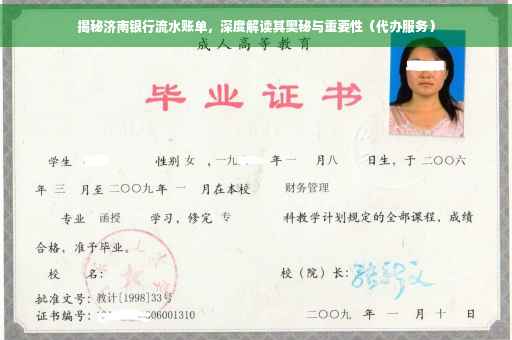 揭秘济南银行流水账单，深度解读其奥秘与重要性（代办服务）
成人高等教育
毕业证书
学生 性别 女 ，一九 年 一 月 八 日生，于 二〇〇六
年 三 月至 二〇〇九 年 一 月在本校 财务管理
专业 函授 学习，修完 专 科教学计划规定的全部课程，成绩
合格，准予毕业。
校 名： 校（院）长：
批准文号：教计[1998]33号
证书编号： 06001310 二〇〇九 年 一 月 十 日